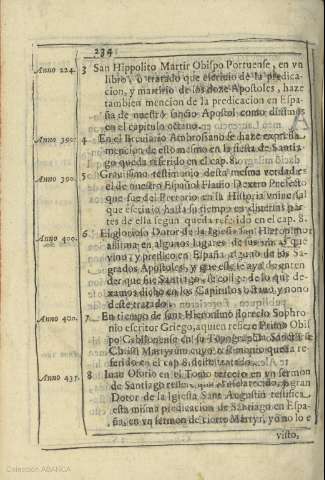 234
Anno 224. 3 San Hippolito Martir Obispo Portuense, en vn
libro, ò tratado que escriuio de la predica-
cion, y martirio de los doze Apostoles, haze
tambien mencion de la predicacion en Espa-
ña de nuestro sancto Apostol como diximos
en el capitulo octauo.
Anno 390. 4 En el Breuiario Ambrosiano se haze expressa
mencion de esto mesmo en la fiesta de Santia-
go queda referido en el cap. 8.
Anno 390. 5 Grauissimo testimonio desta mesma verdad es
el de nuestro Español Flauio Dextro Prefecto
que fue del Pretorio en la Historia vniuersal
que escriuio hasta su tiempo en diuersas par-
tes de ella segun queda referido en el cap. 8.
Anno 400. 6 El glorioso Dotor de la Iglesia san Hieronimo
afirma en algunos lugares de sus obras que
vino, y predico en España alguno de los Sa-
grados Apostoles, y que este se aya de enten
der que fue Santiago se colige de lo que de-
xamos dicho en los Capitulos octauo y nono
deste tratado.
Anno 400. 7 En tiempo de sant Hieronimo florecio Sophro-
nio escritor Griego, a quien refiere Primo Obis
po Cabilonense en su Topographia Sanctorū
Christi Martyrum cuyo testimonio queda re-
ferido en el cap. 8. deste tratado.
Anno 431. 8 Iuan Osorio en el Tomo tercero en vn sermon
de Santiago refiere que el esclarecido, y gran
Dotor de la Iglesia Sant Augustin testifica
esta misma predicacion de Santiago en Espa-
ña, en vn sermon de cierto Martyr, yo no le e
visto,
Colección ABANCA